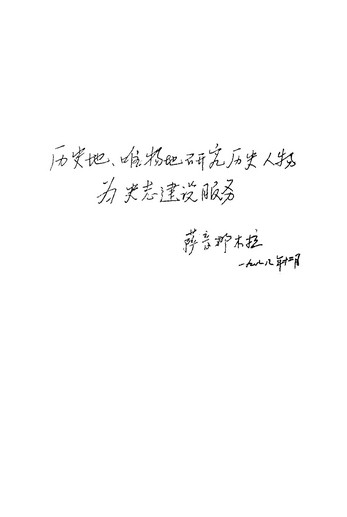 历史地、唯物地研究历史人物
为史志建设服务
萨音那木拉
一九八八年十二月